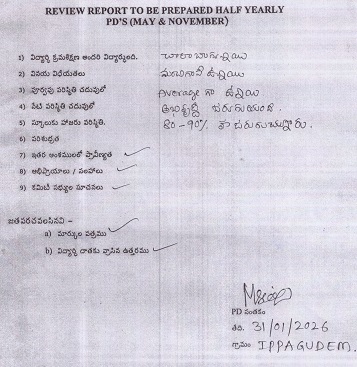 REVIEW REPORT TO BE PREPARED HALF YEARLY
PD'S (MAY & NOVEMBER)
1) విద్యార్థి క్రమశిక్షణ అందరి విద్యార్థులది. చాలా బాగున్నాయి
2) వినయ విధేయతలు మంచిగానే ఉన్నాయి
3) పూర్వపు పరిస్థితి చదువులో Average గా ఉన్నాయి
4) నేటి పరిస్థితి చదువులో అభివృద్ధి జరుగుతుంది.
5) స్కూలుకు హాజరు పరిస్థితి. 80-90% హాజరుగుచున్నారు.
6) పరిశుభ్రత
7) ఇతర అంశములలో ప్రావీణ్యత
8) అభిప్రాయాలు / సలహాలు
9) కమిటీ సభ్యుల సూచనలు
జతపరచవలసినవి –
a) మార్కుల పత్రము
b) విద్యార్థి దాతకు వ్రాసిన ఉత్తరము
PD సంతకం
తేది. 31/01/2026
గ్రామం IPPAGUDEM.